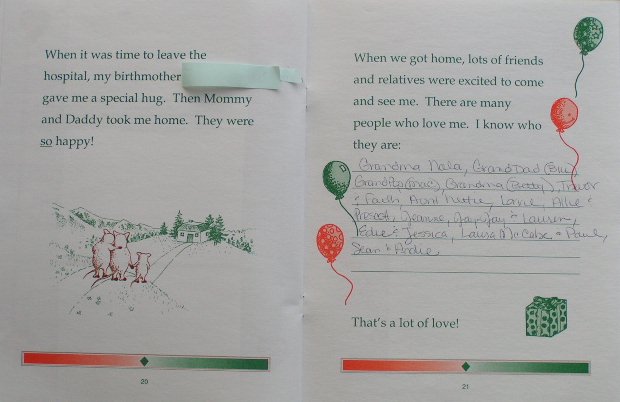 When it was time to leave the
hospital, my birthmother
gave me a special hug. Then Mommy
and Daddy took me home. They were
so happy!
20
When we got home, lots of friends
and relatives were excited to come
and see me. There are many
people who love me. I know who
they are:
Grandma Nala, GrandDad (Bill)
(Mac), Grandma (Betty), Trevor
& Faith, Aunt Ruthie, Lorne, Allie &
Prescott, Jeanne, & Lauren,
Edie & Jessica, Laura McCabe & Paul,
Sean &
That's a lot of love!
21